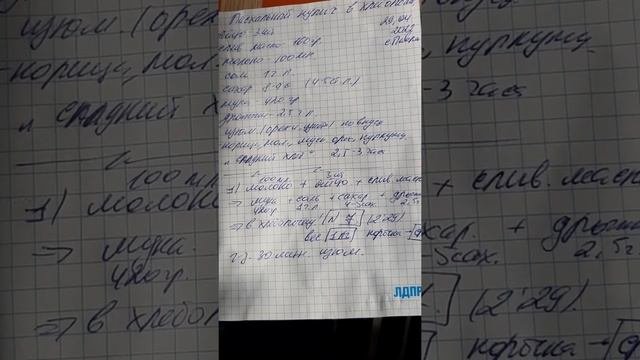 Пасхальный кулич в хлебопечке
29,04
яйцо 3 шт 2019
слив. масло - 160 гр.
молоко - 100 мл
соль 1 ч.л.
сахар 8-9 б (4-5 б л)
мука - 420 гр
дрожжи - 2,5 ч л
изюм. (орехи, цукаты) по вкусу
корица, мол. муск. орех, куркуму
" сладкий хлеб " 2,5 - 3 часа
100 мл 3 шт
1) молоко + яйцо + слив. масло
=> мука + соль + сахар + дрожжи
420 гр 1 ч.л.
=> в хлебопечку [N 7] (2'29)
вес [1 кг] корочка
2) - 30 мин. изюм.
ЛДПР
изюм. (орех
корица, мол.
куркуму
и сладкий х
- 3 часа
100 мл
1) молоко
+ слив. масло
=> мука
420 гр.
сахар. + дрожж
2,5 ч
=> в хлебоп
(2'29)
корочка